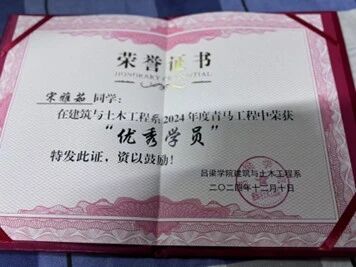 荣誉证书
HONORARY CREDENTIAL
宋雅茹 同学:
在建筑与土木工程系2024年度青马工程中荣获
“优秀学员”
特发此证，资以鼓励！
吕梁学院建筑与土木工程系
二〇二四年十二月十日